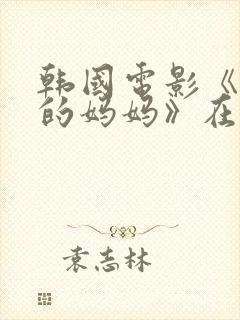 韩國電影《
的妈妈》在
袁志林